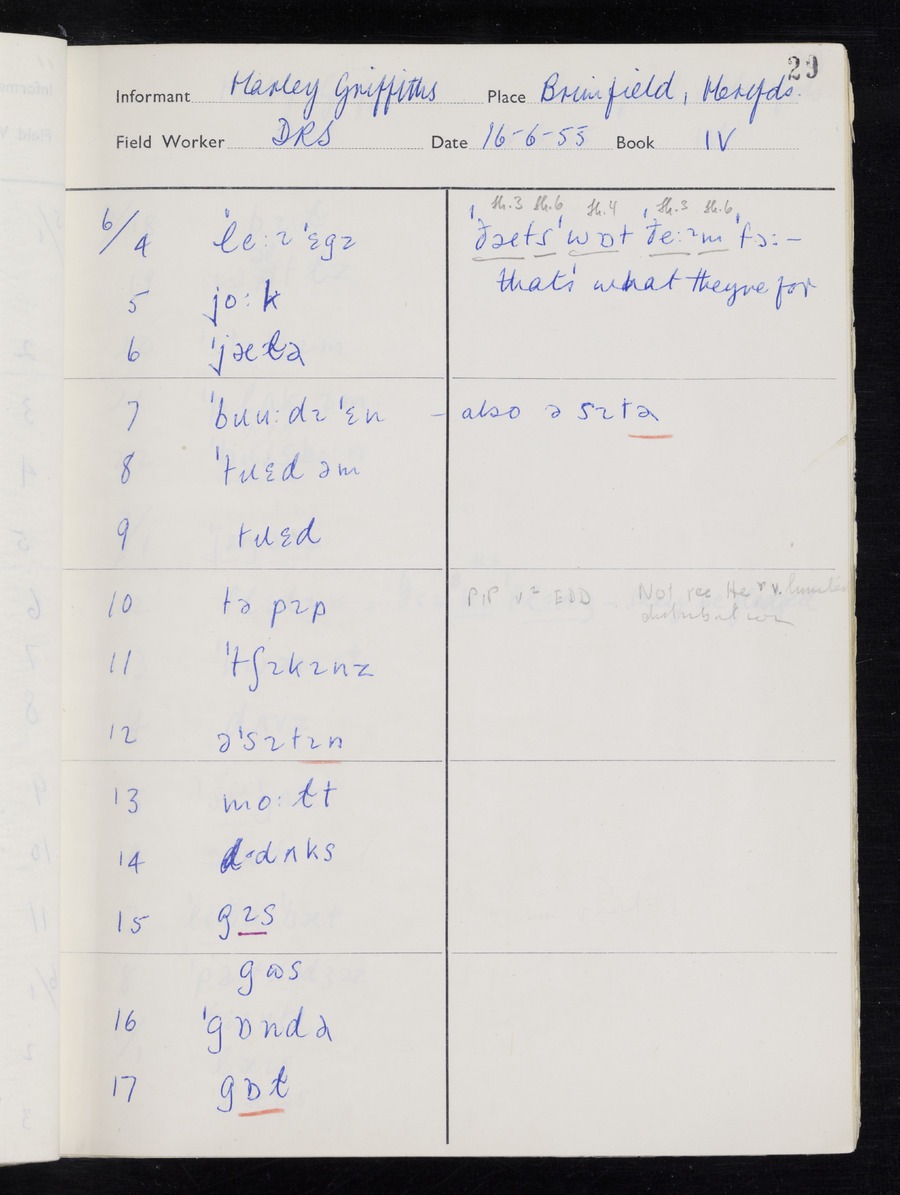 29
Informant Harley Griffiths Place Brimfield, Herefds.
Field Worker DRS Date 16-6-55 Book IV
sh.3 sh.6 sh.4 sh.3 sh.6
6/4 ˈleːɪ ˈɛgz ˈðæts ˈwɒt ˈðeːɪm ˈfɔː –
that's what they're for
5 joːk
6 ˈjælə
7 ˈbuuːdɪ ˈɛn – also ə sɪtə
8 ˈtuɛd əm
9 tuɛd
10 tə pɪp PIP v² EDD Not rec He v. limited
distribution
11 ˈtʃɪkɪnz
12 əˈsɪtɪn
13 moːlt
14 dʌks
15 gɪs
gωs
16 ˈgɒndə
17 gɒl